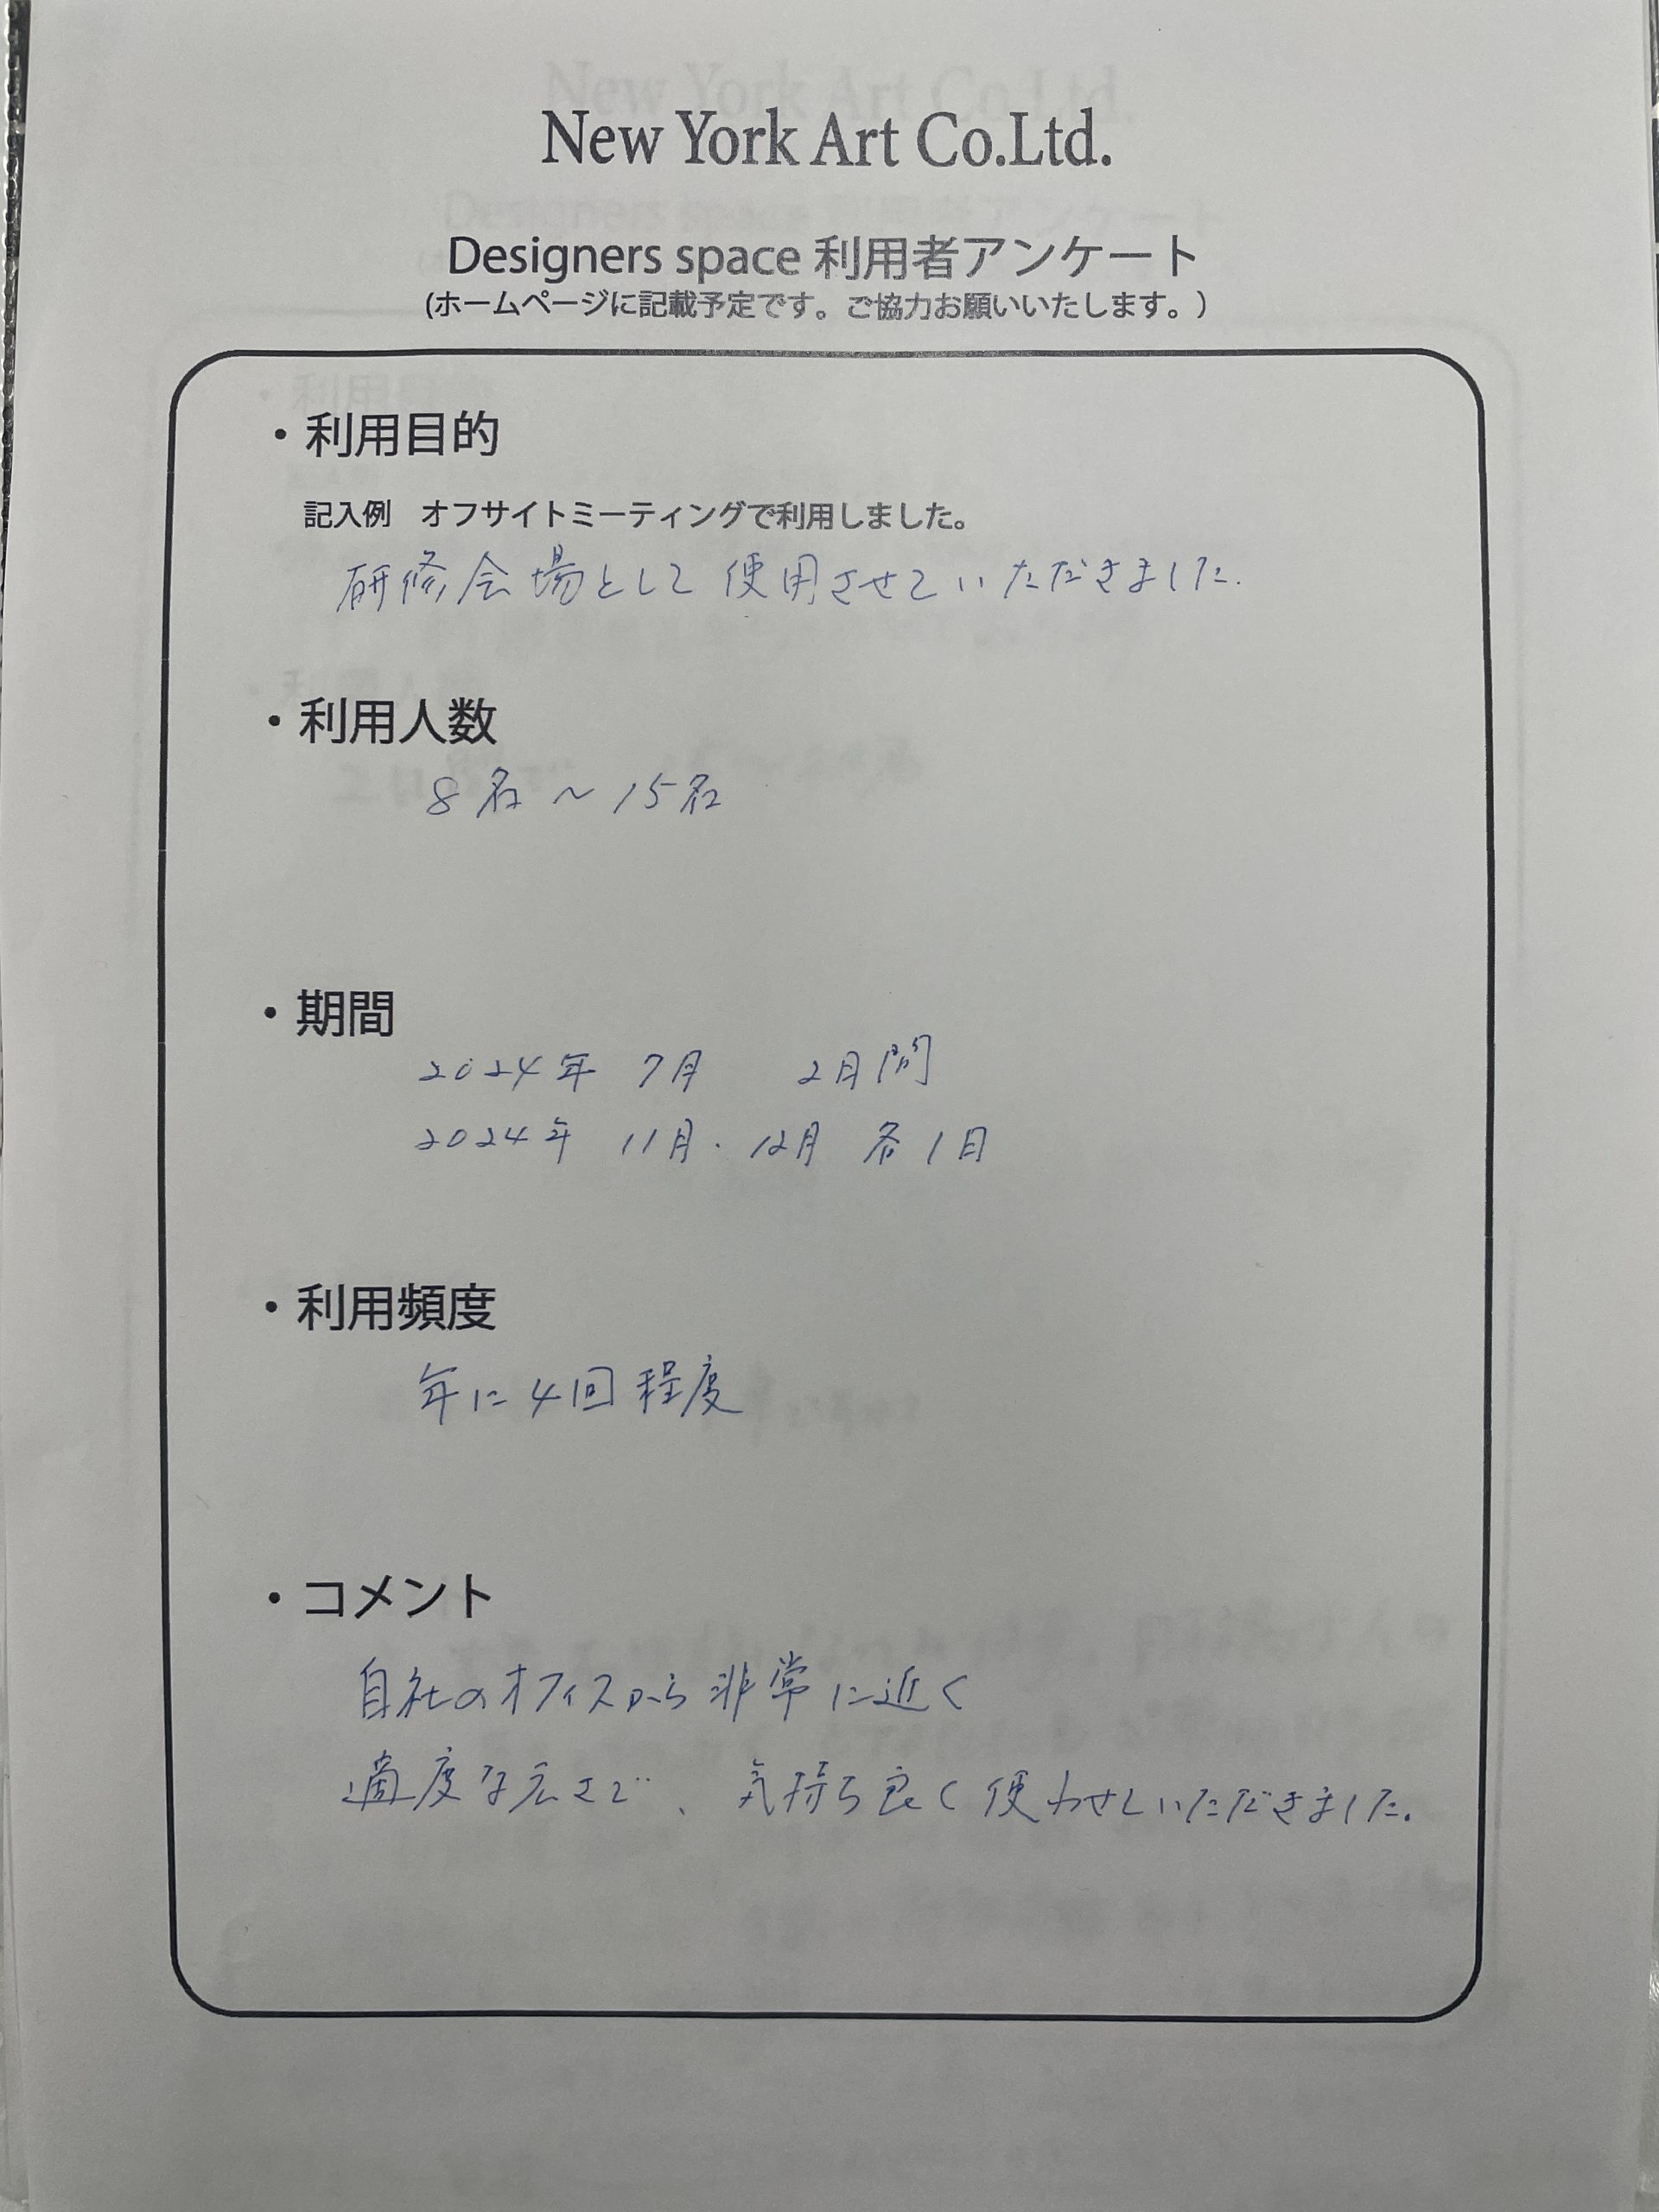 New York Art Co.Ltd.
Designers space 利用者アンケート
(ホームページに記載予定です。ご協力お願いいたします。)
・利用目的
記入例　オフサイトミーティングで利用しました。
研修会場として使用させていただきました.
・利用人数
8名～15名
・期間
2024年 7月 2日間
2024年 11月・12月 各1日
・利用頻度
年に4回程度
・コメント
自社のオフィスから非常に近く
適度な広さで、気持ち良く使わせていただきました.